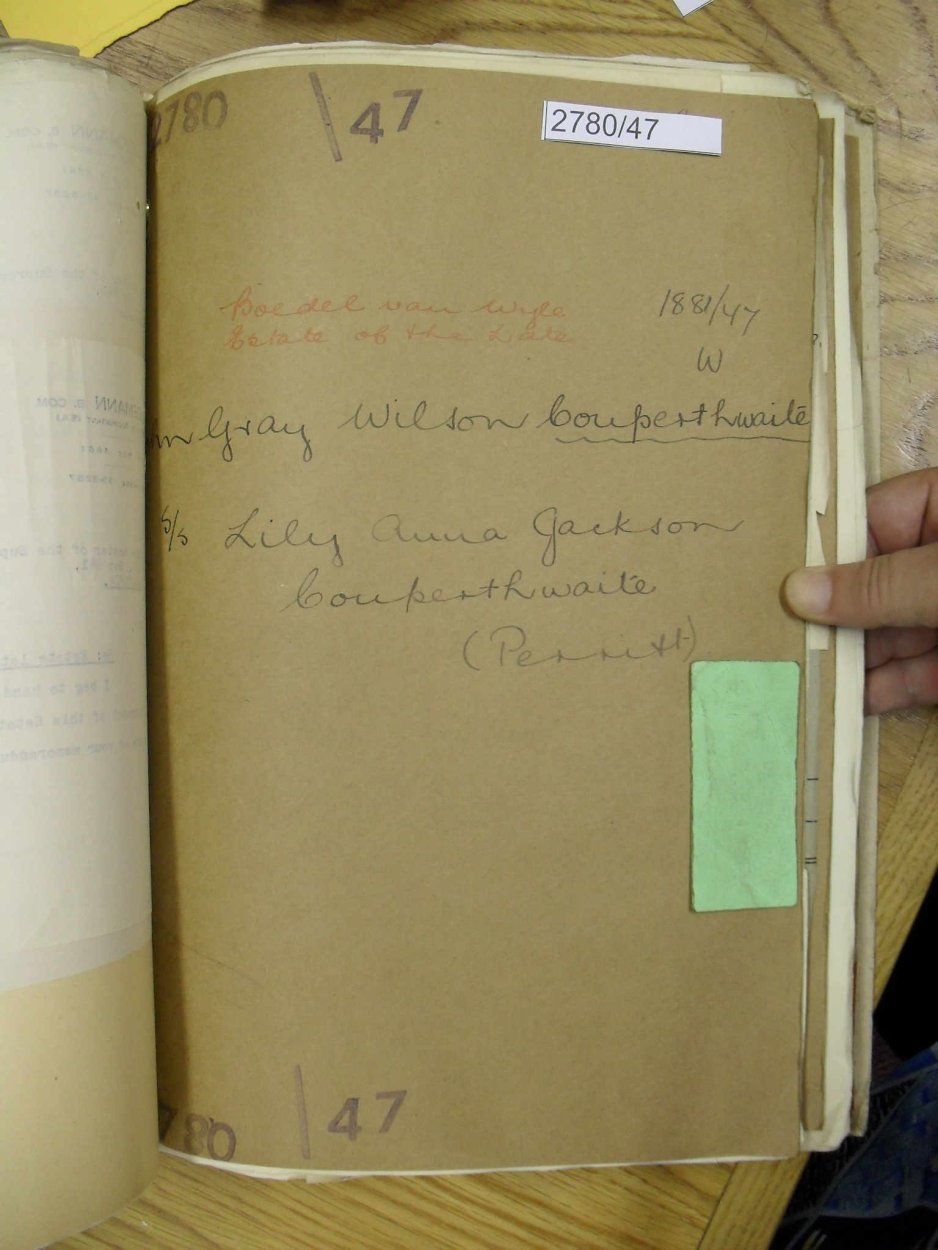 2780 \ 47
2780/47
Boedel van Wyle
Estate of the Late
1881/47
W
m Gray Wilson Couperthwaite
S/S Lily Anna Jackson
Couperthwaite
(Perritt)
780 \ 47